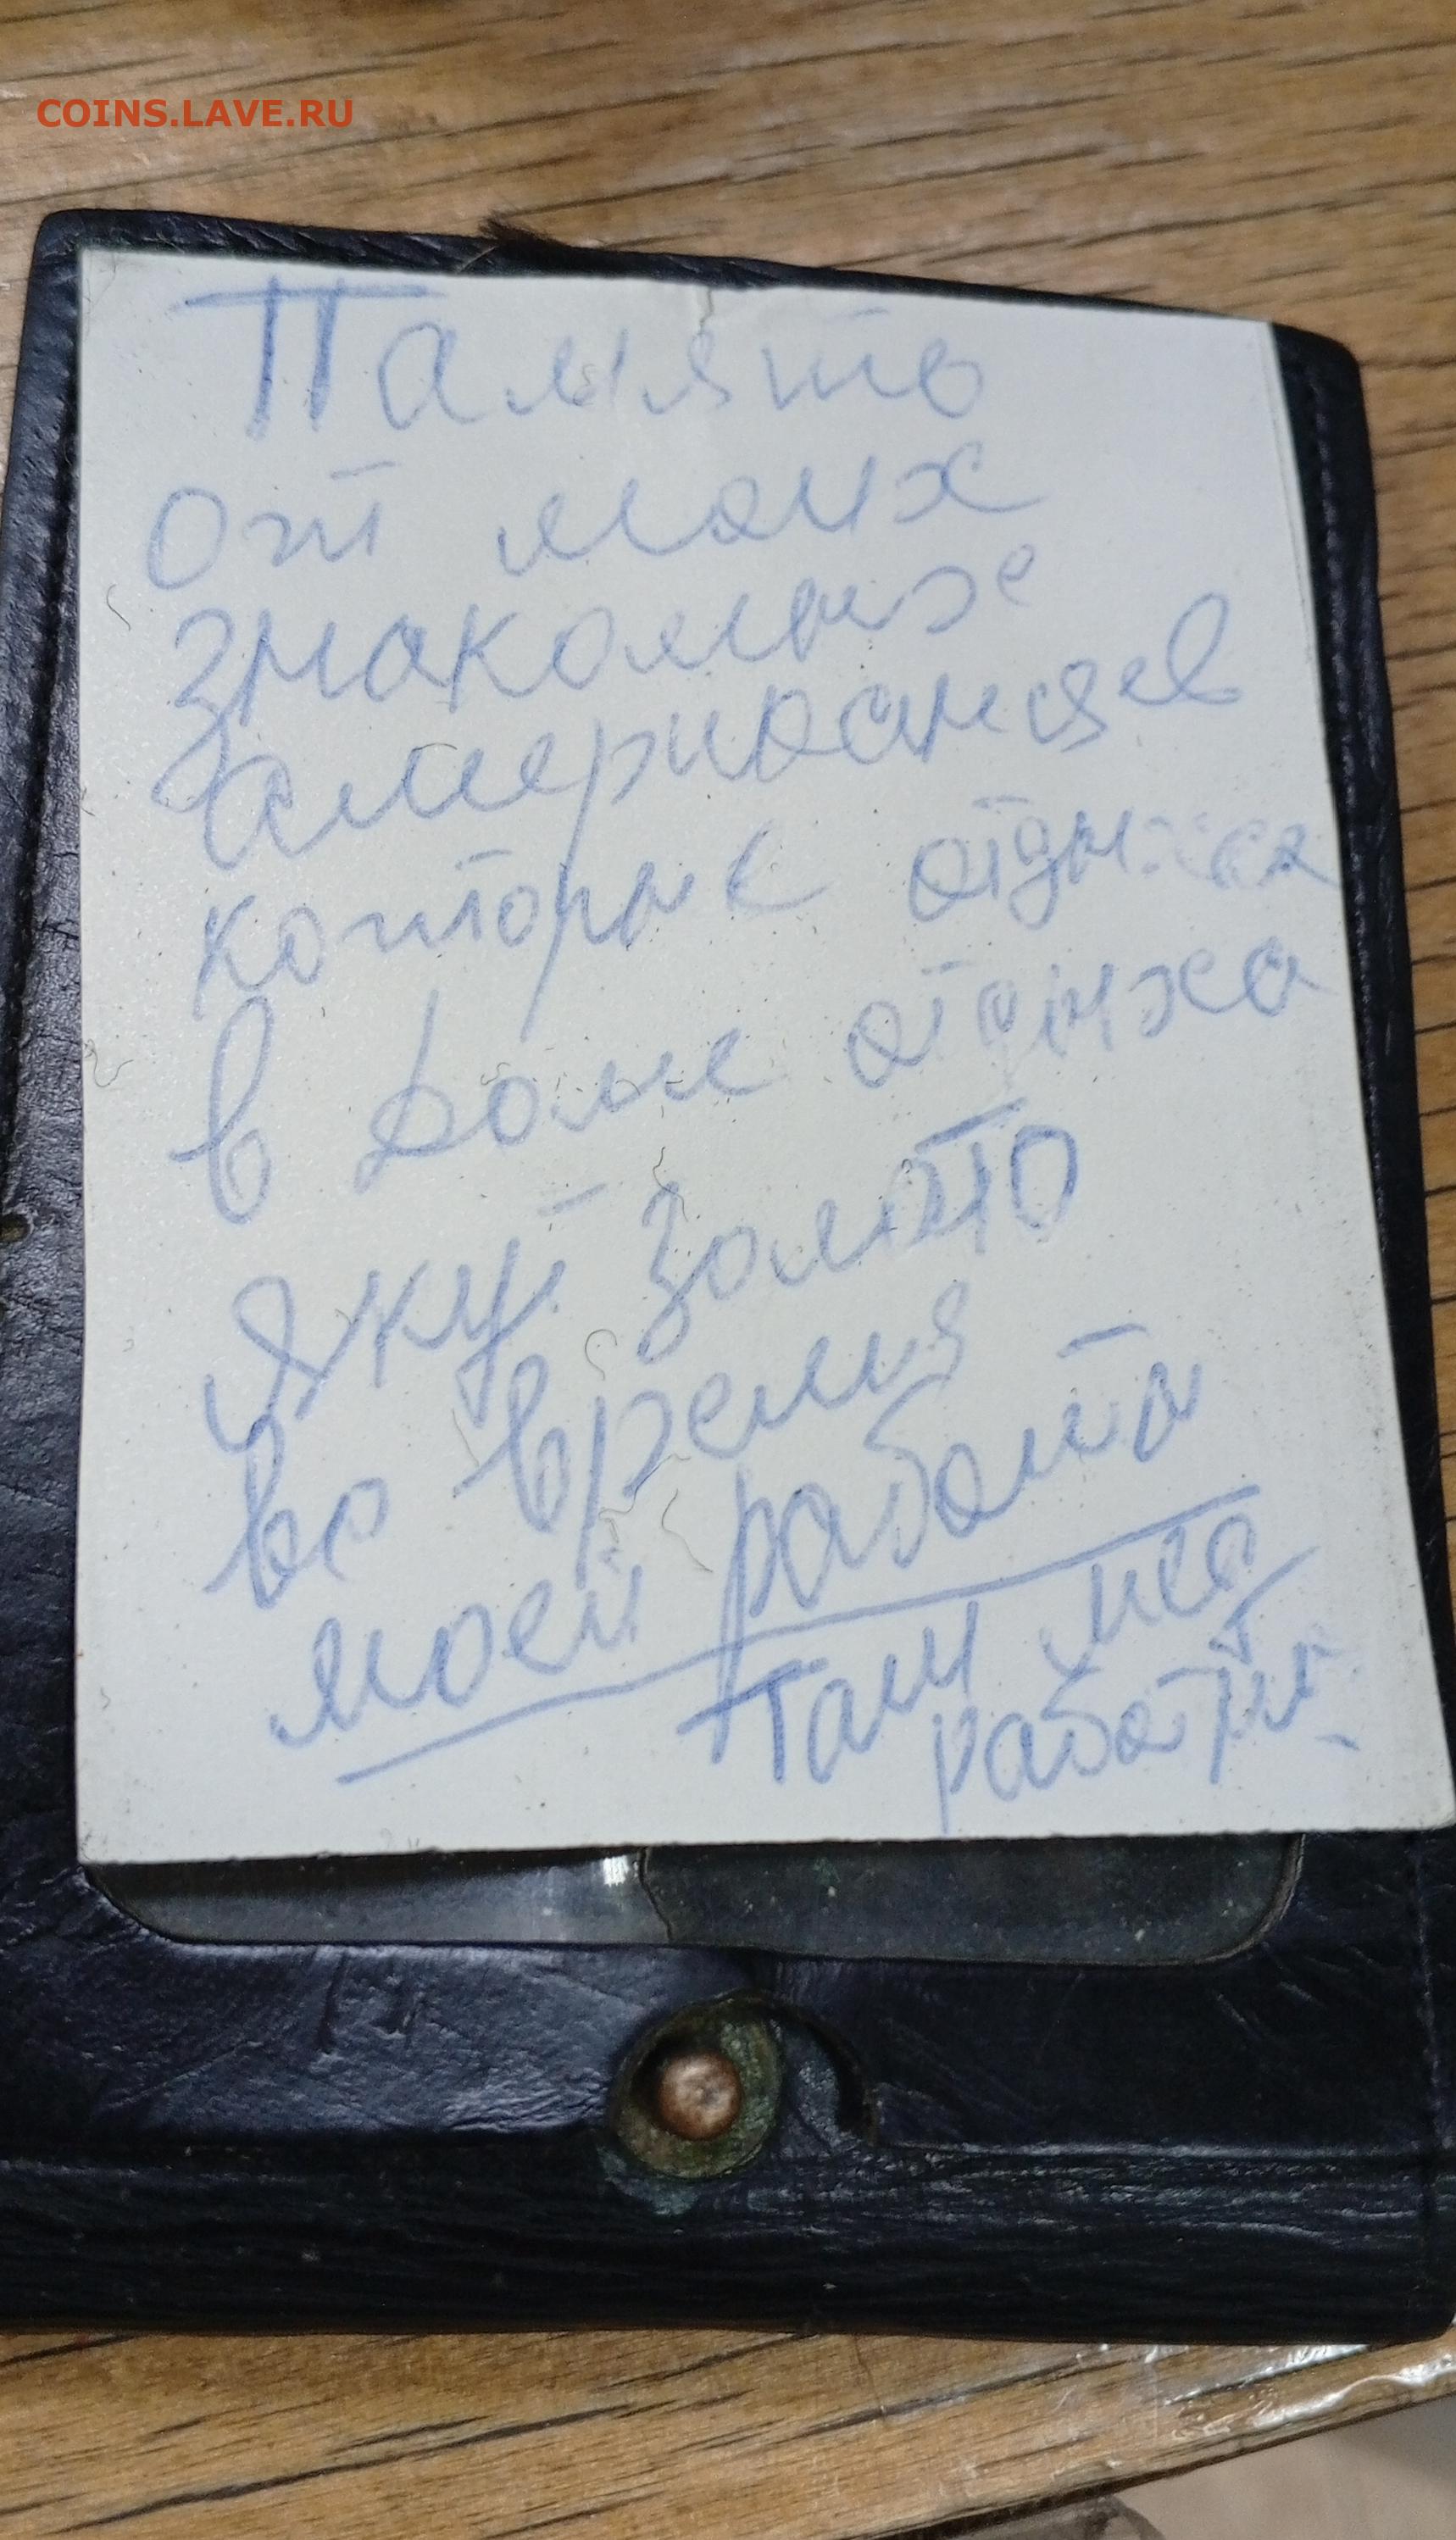 COINS.LAVE.RU
Память
от моих
знакомых
американцев
которые отдыха
в доме отдыха
Якут золото
во время
моей работы
там
работы